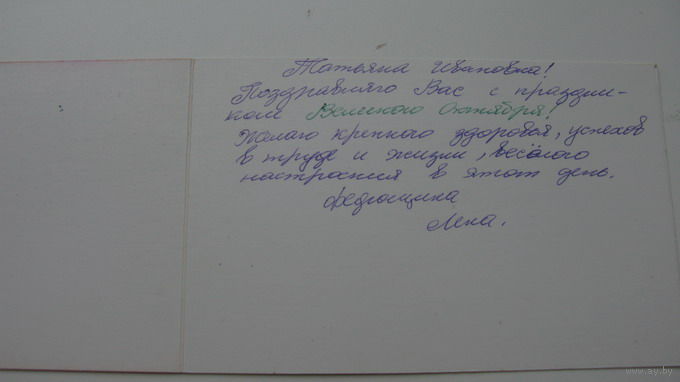 Татьяна Ивановна!
Поздравляю Вас с праздни-
ком Великого Октября!
Желаю крепкого здоровья, успехов
в труде и жизни, весёлого
настроения в этот день.
Федюшина
Лена.
www.ay.by